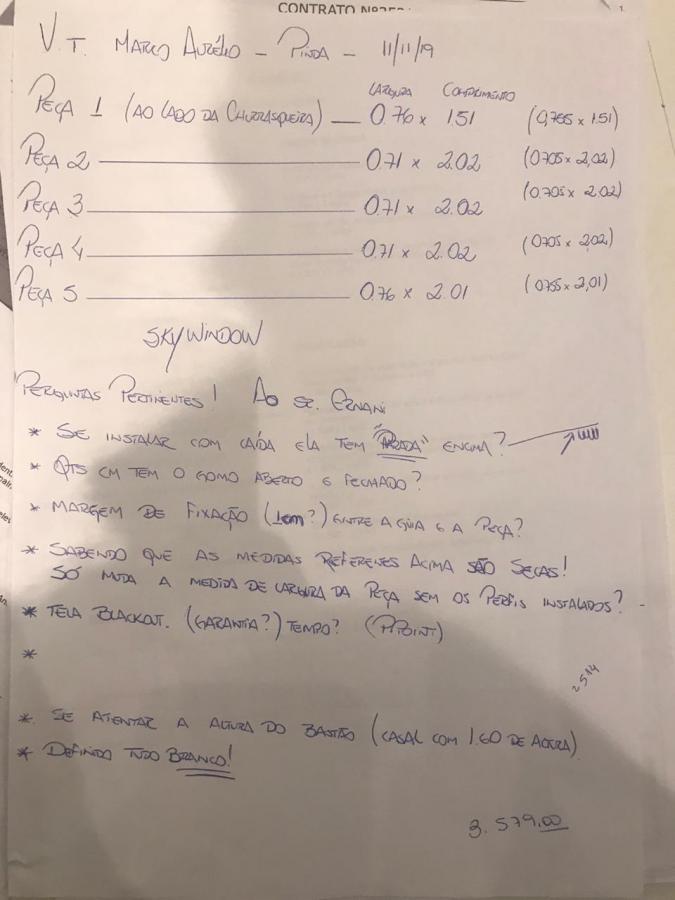 CONTRATO Nº
V.T. MARCO AURÉLIO - PINDA - 11/11/19
LARGURA COMPRIMENTO
PEÇA 1 (AO LADO DA CHURRASQUEIRA) — 0.76 x 1.51 (0,755 x 1.51)
PEÇA 2 — 0.71 x 2.02 (0.705 x 2,02)
PEÇA 3 — 0.71 x 2.02 (0.705 x 2.02)
PEÇA 4 — 0.71 x 2.02 (0705 x 2,02)
PEÇA 5 — 0.76 x 2.01 (0755 x 2,01)
SKYWINDOW
PERGUNTAS PERTINENTES! AO SR. ERNANI
* SE INSTALAR COM CAÍDA ELA TEM "PARADA" ENCIMA?
* QTS CM TEM O GOMO ABERTO E FECHADO?
* MARGEM DE FIXAÇÃO (1cm?) ENTRE A GUIA E A PEÇA?
* SABENDO QUE AS MEDIDAS REFERENES ACIMA SÃO SECAS!
SÓ MUDA A MEDIDA DE LARGURA DA PEÇA SEM OS PERFIS INSTALADOS?
* TELA BLACKOUT. (GARANTIA?) TEMPO?
*
2514
* SE ATENTAR A ALTURA DO BASTÃO (CASAL COM 1.60 DE ALTURA)
* DEFINIDO TUDO BRANCO!
3.579,00